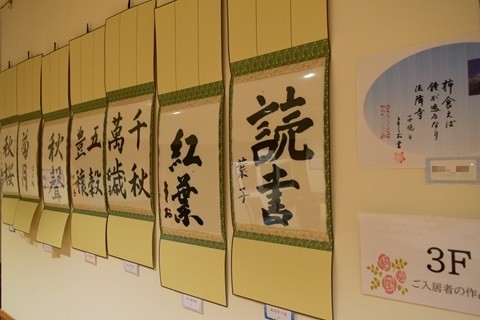 読書
葉子
紅葉
千秋
萬歳
五穀
豊穣
秋聲
菊月
秋桜
柿食えば
鐘が鳴るなり
法隆寺
子規句
3F
ご入居者の作